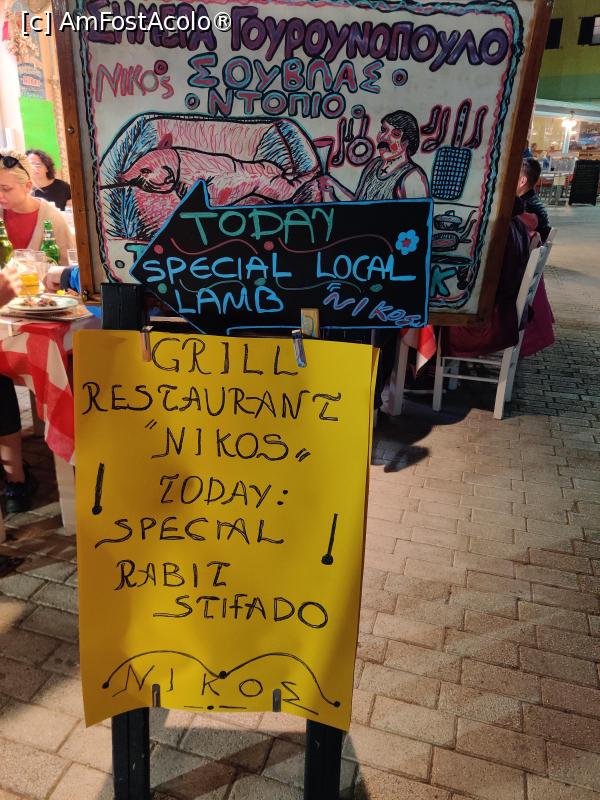 [c] AmFostAcolo®
ΣΗΜΕΡΑ ΓΟΥΡΟΥΝΟΠΟΥΛΟ
NIKOS ΣΟΥΒΛΑΣ
ΝΤΟΠΙΟ
TODAY
SPECIAL LOCAL
LAMB NIKOS
GRILL
RESTAURANT
"NIKOS"
TODAY:
SPECIAL
RABIT
STIFADO
NIKOΣ